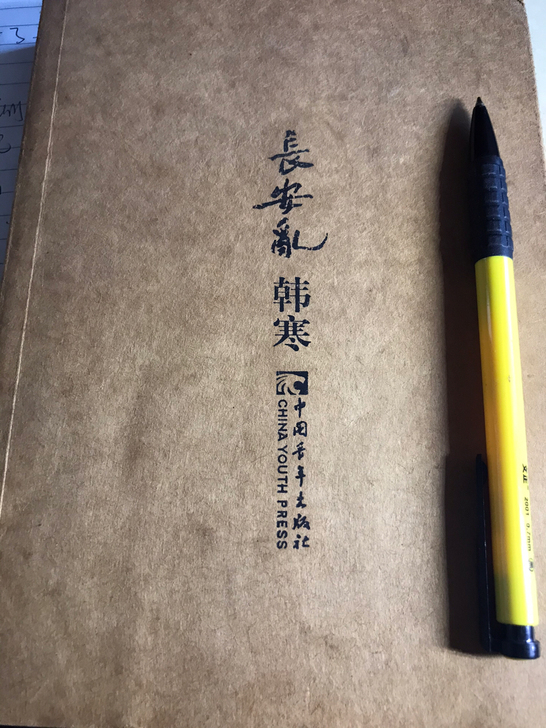 長安亂
韩寒
中国青年出版社
CHINA YOUTH PRESS
2001 0.7mm